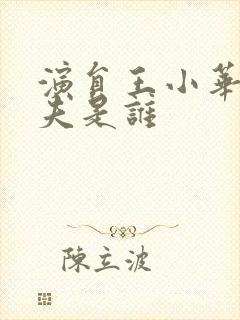 演員王小華
夫是誰
陳立波